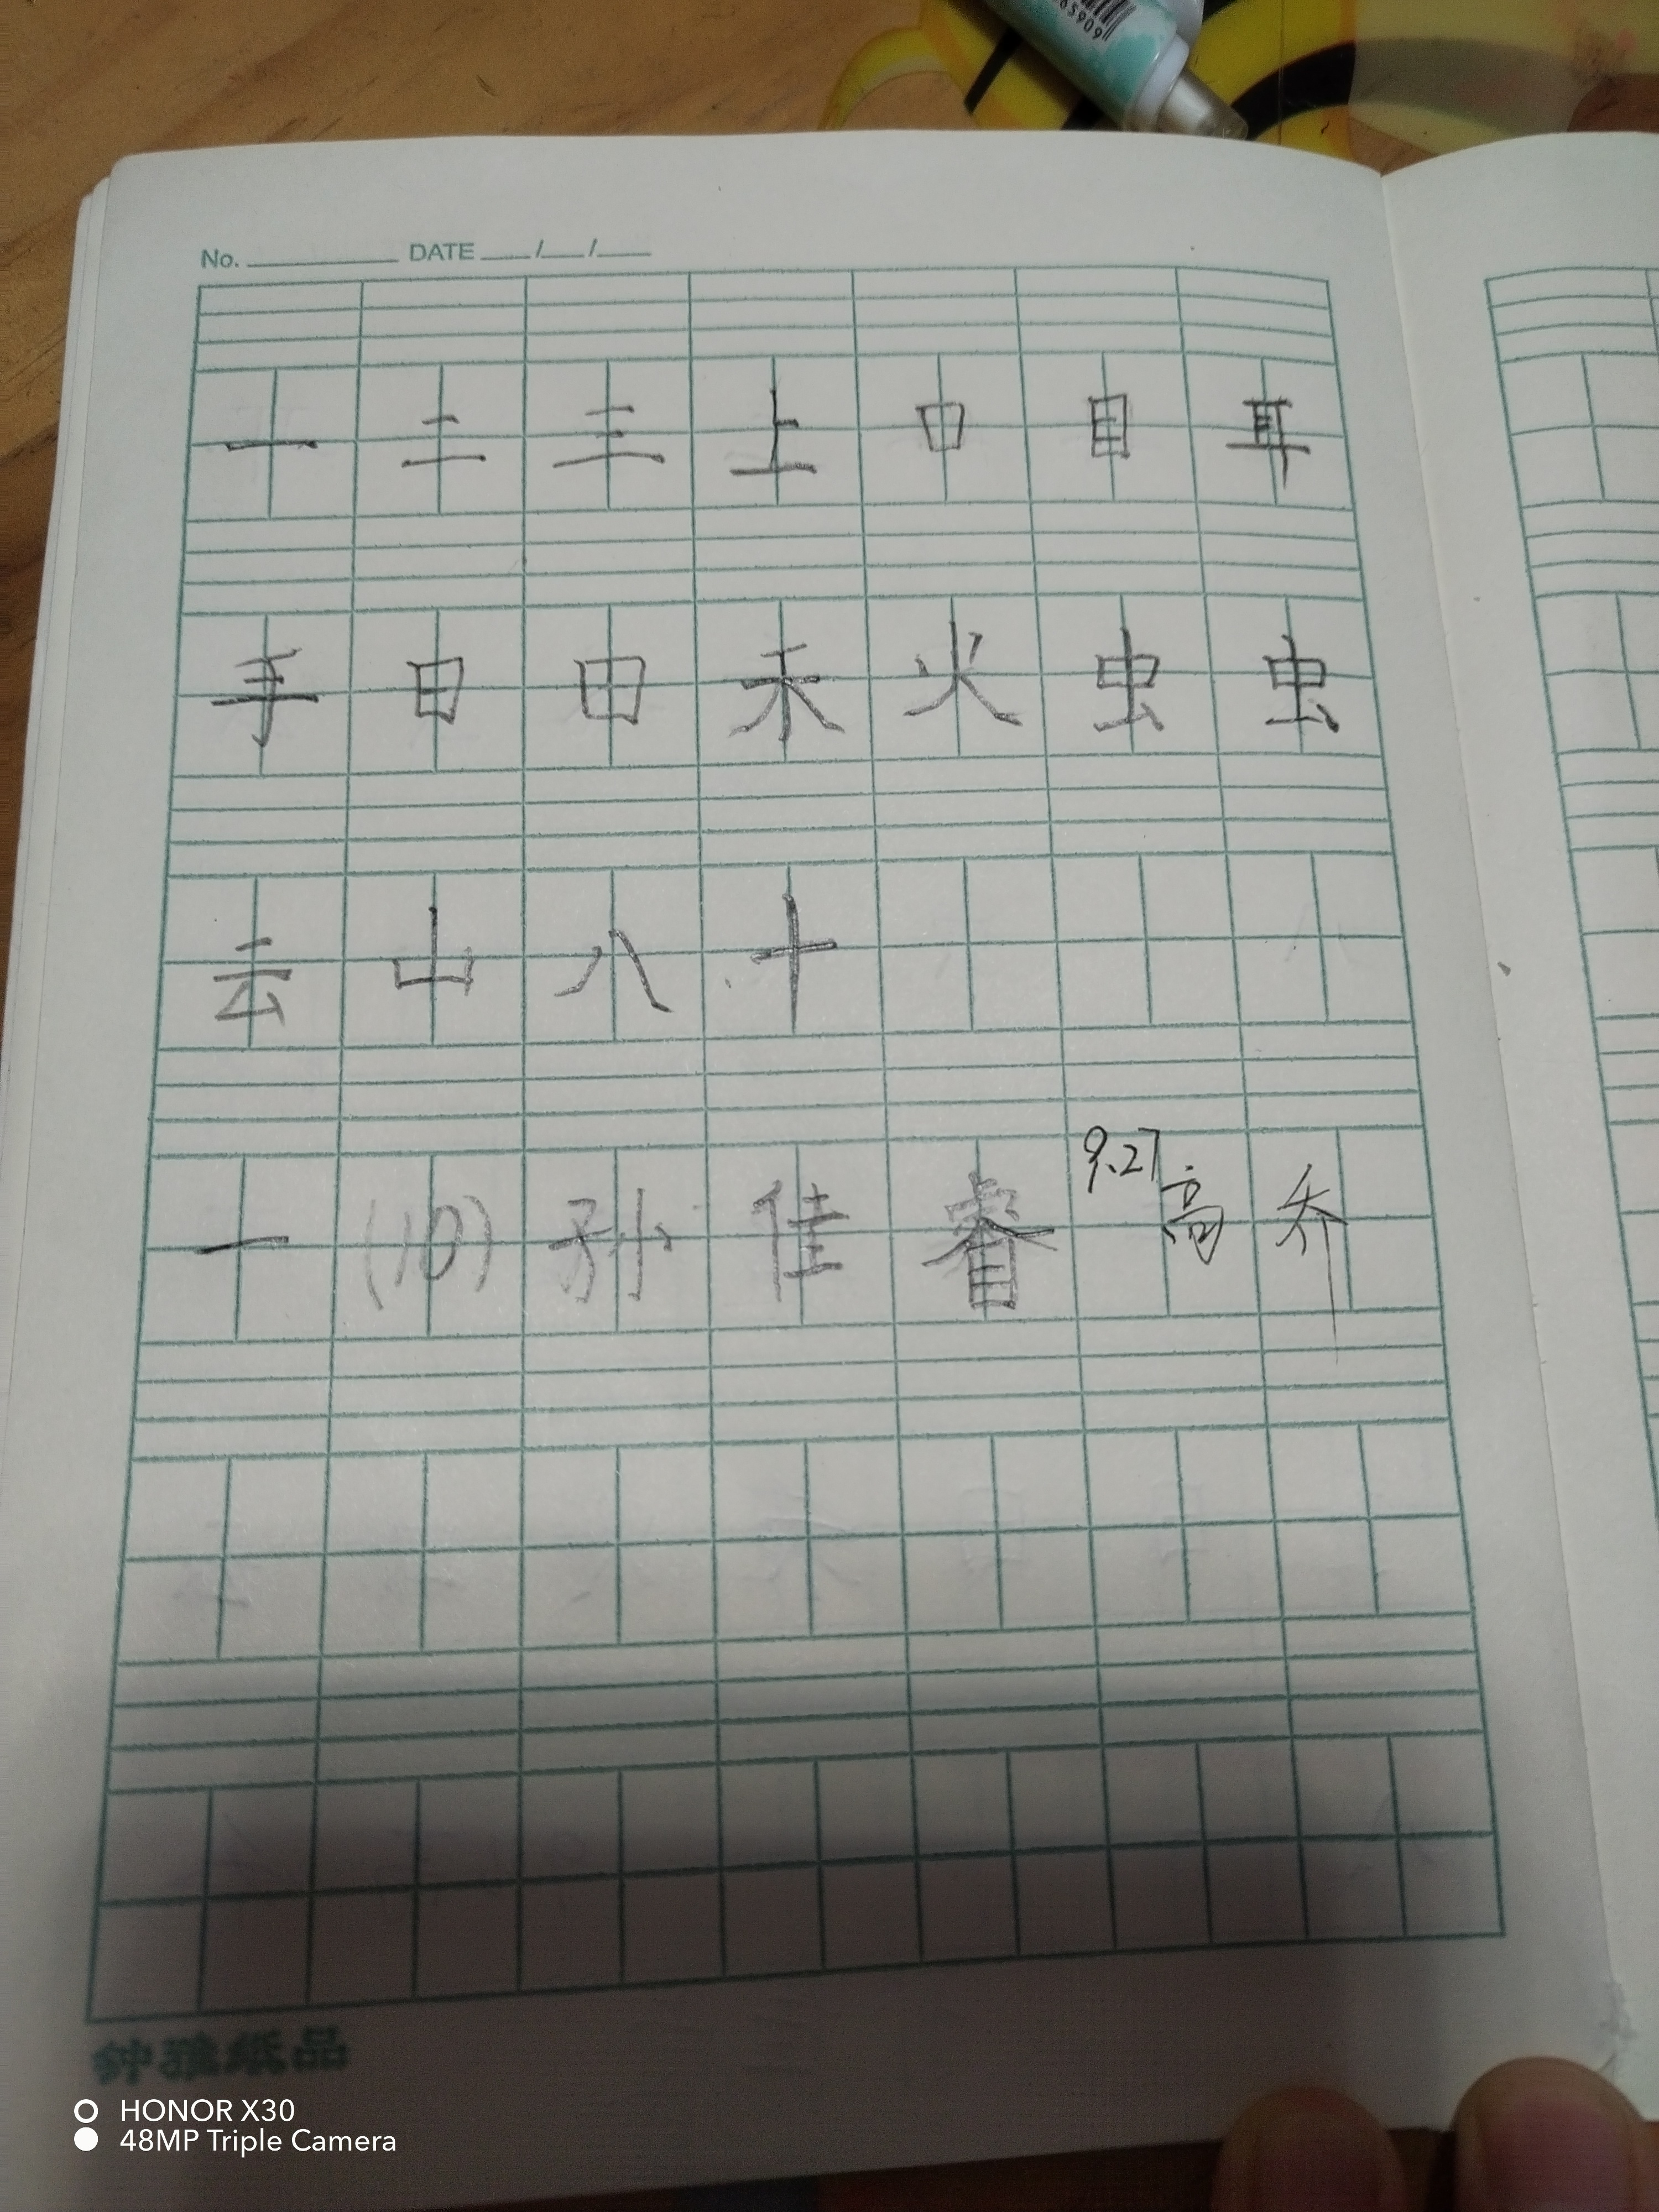 65909
No. DATE / /
一 二 三 上 口 目 耳
手 日 田 禾 火 虫 虫
云 山 八 十
一 (10) 孙 佳 睿 9.27 高 乔
钟雅纸品
HONOR X30
48MP Triple Camera